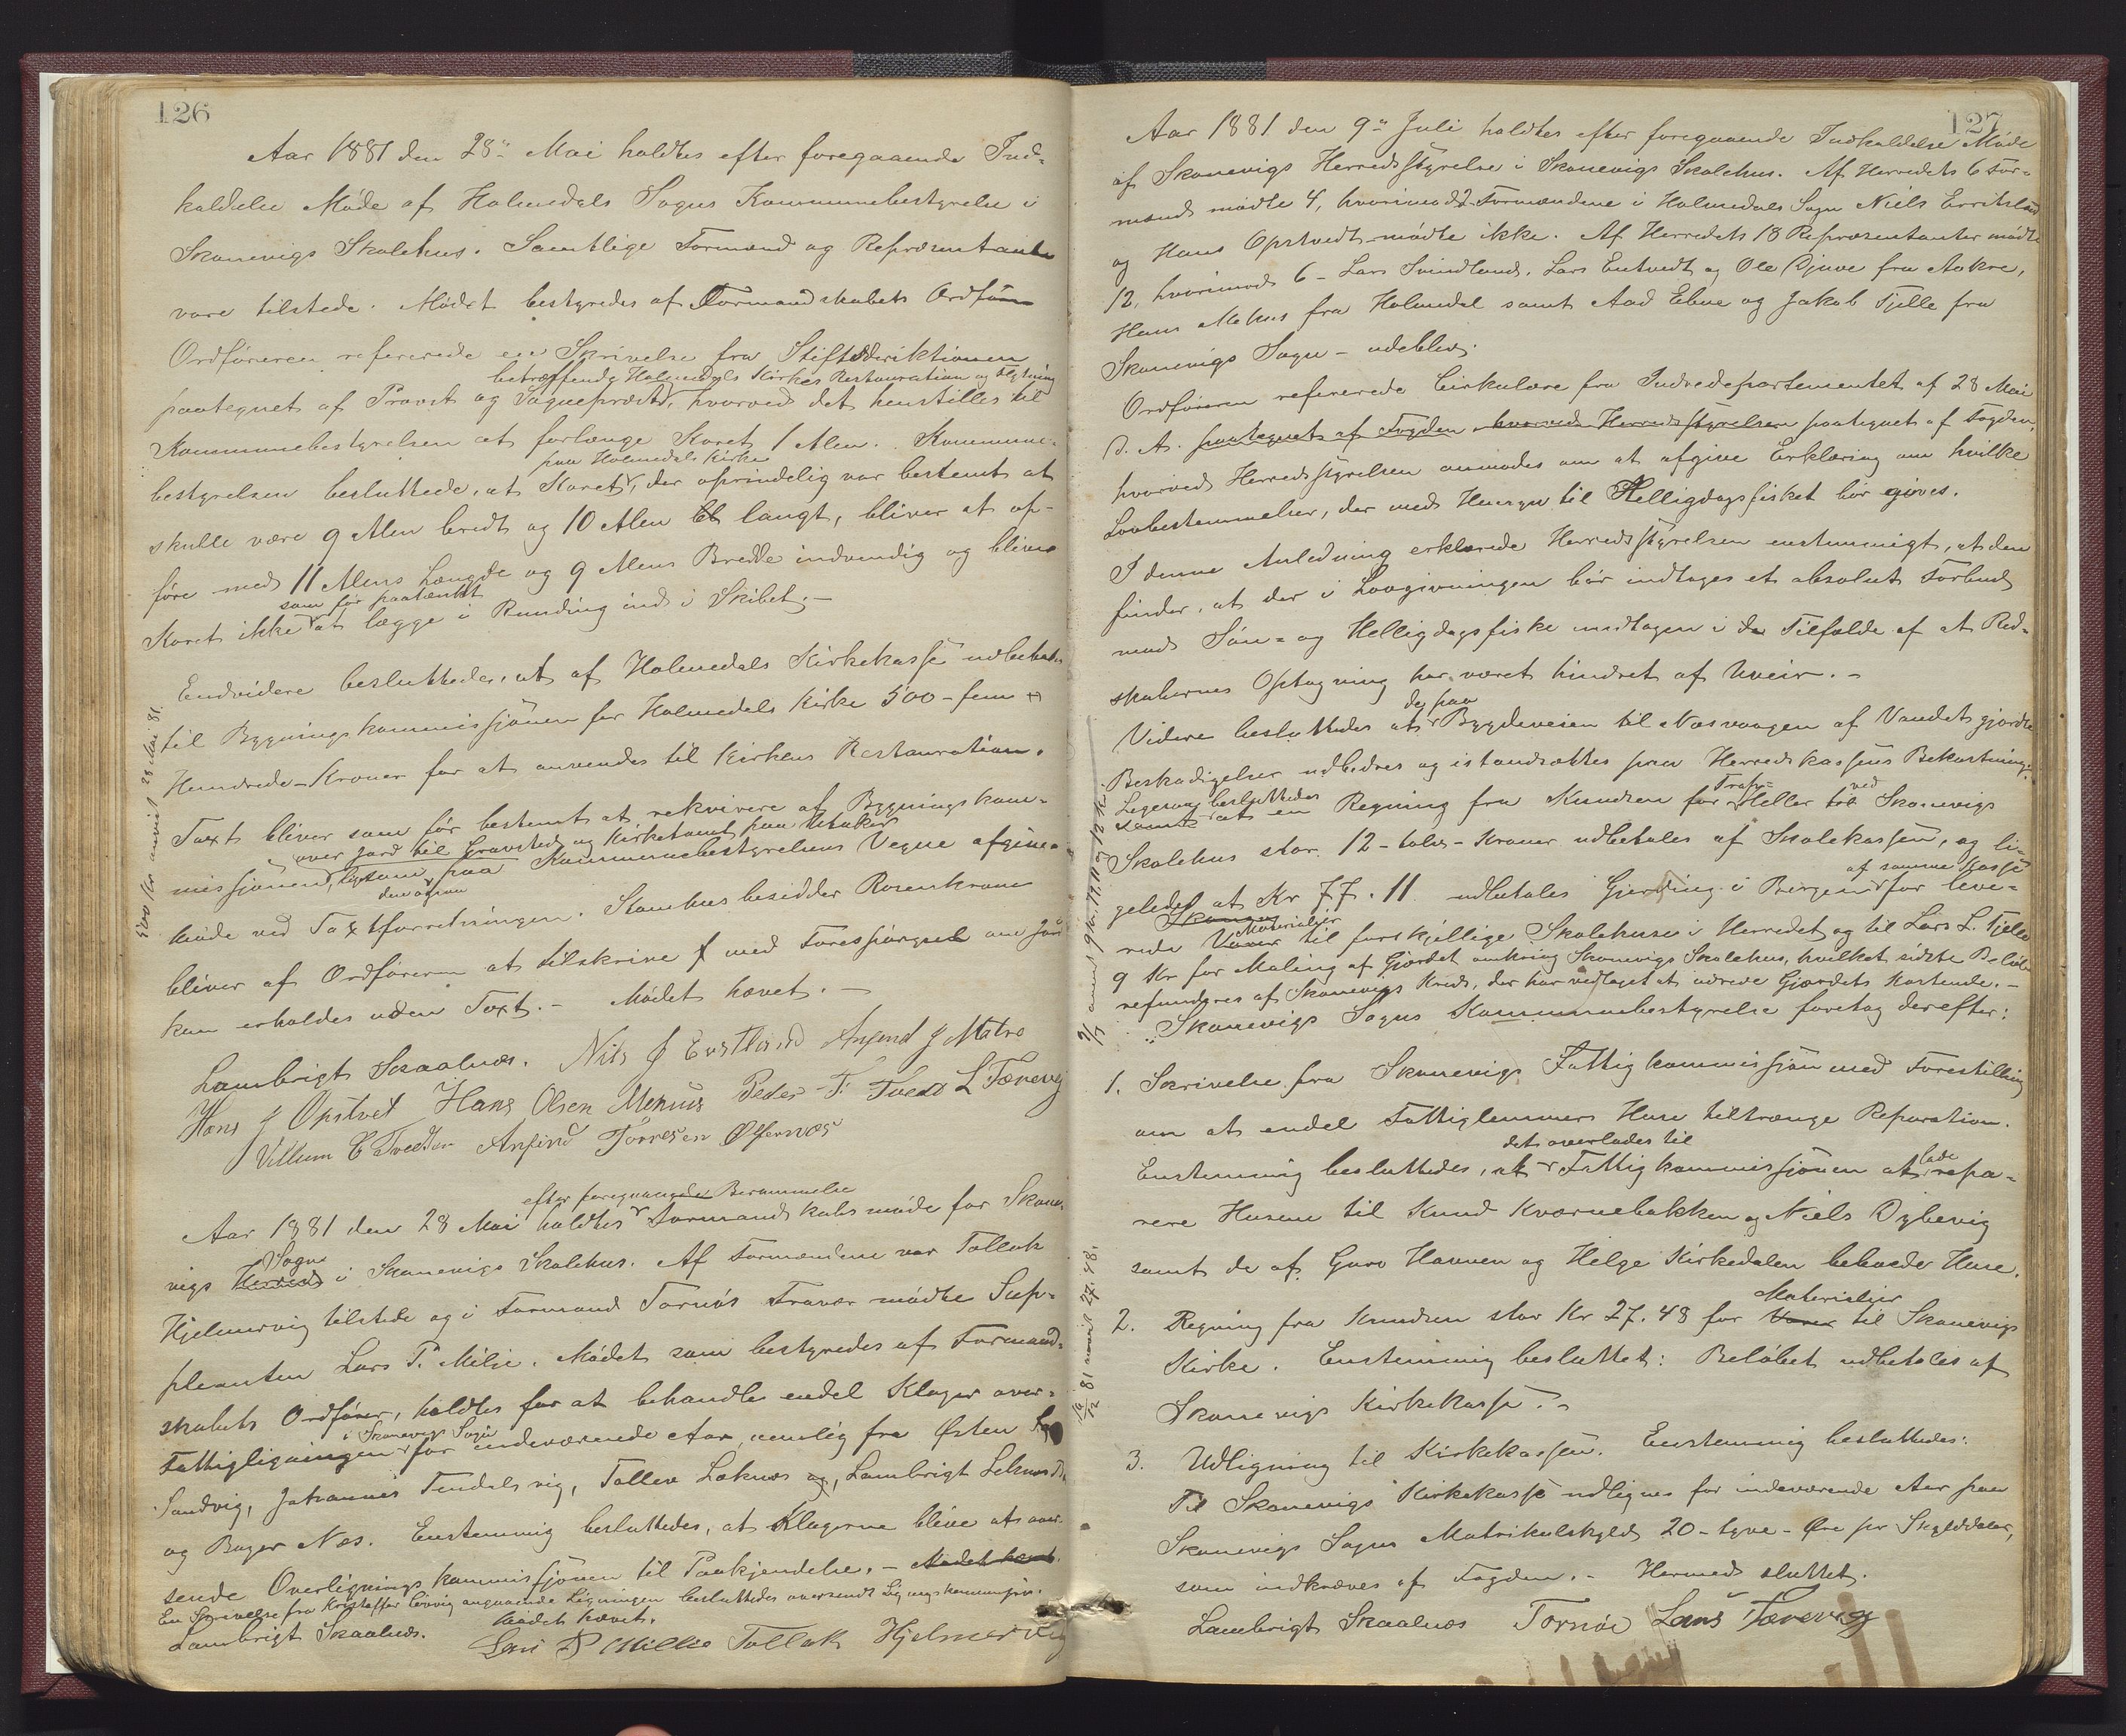 126
Aar 1881 den 28de Mai holdtes efter foregaaende Ind-
kaldelse Møde af Holmedals Sogns Kommunebestyrelse i
Skonevigs Skolehus. Samtlige Formænd og Repræsentanter
vare tilstede. Mødet bestyredes af Formandskabets Ordfører
Ordføreren refererede en Skrivelse fra Stiftsdirektionen
betræffende Holmedals Kirkes Restauration og Flytning
paategnet af Provst og Sognepræst, hvorved det henstilles til
Kommunebestyrelsen at forlænge Koret 1 Alen. Kommune-
paa Holmedals Kirke
bestyrelsen besluttede, at Koret, der oprindelig var bestemt at
skulle være 9 Alen bredt og 10 Alen langt, bliver at op-
føre med 11 Alens Længde og 9 Alens Bredde indvendig og bliver
som før paatænkt
Koret ikke at lægge i Runding ind i Skibet.-
Endvidere besluttedes, at af Holmedals Kirkekasse udbetales
til Bygningskommissjonen for Holmedals Kirke 500 - fem
Hundrede - Kroner for at anvendes til Kirkens Restauration.
500 Kr anvist 28 Mai 81.
Taxt bliver som før bestemt at rekvirere af Bygningskom-
over Jord til Gravsted og Kirketomt paa Utaker
missjonen, ligesom paa Kommunebestyrelsens Vegne afgive
den ogsaa
møde ved Taxtforretningen. Stamhusbesidder Rosenkrone
bliver af Ordføreren at tilskrive med Forespørgsel om Jord
kan erholdes uden Taxt. - Mødet hævet. -
Lambrigt Skaalnæs. Nils J Ersland Anfind J Matre
Hans J Opstvet Hans Olsen Mehus Peder T. Tvedt L Tærevig
Villum E Tvedten Anfind Torresen Ølfernæs
efter foregaaende Berammelse
Aar 1881 den 28 Mai holdtes Formandskabsmøde for Skone-
Sogn
vigs Herred i Skonevigs Skolehus. Af Formændene var Tollak
Hjelmervig tilstede og i Formand Tornøs Fravær mødte Sup-
pleanten Lars P. Milje. Mødet som bestyredes af Formand-
skabets Ordfører, holdtes for at behandle endel Klager over
i Skonevigs Sogn
Fattigligningen for indeværende Aar, nemlig fra Østen
Sandvig, Johannes Tendalsvig, Tollev Loknæs og, Lambrigt
og Børger Næs. Enstemmig besluttedes, at Klagerne blive at over-
sende Overligningskommissjonen til Paakjendelse. - Mødet hævet.
En Skrivelse fra Kristoffer angaaende Ligningen besluttedes oversendt Ligningskommissjon.
Mødet hævet.
Lambrigt Skaalnæs. Lars P Millie Tollak Hjelmervig
127
Aar 1881 den 9de Juli holdtes efter foregaaende Indkaldelse Møde
af Skonevigs Herredsstyrelse i Skonevigs Skolehus. Af Herredets 6 For-
mænd mødte 4, hvorimod 2 Formændene i Holmedals Sogn Niels Erritsland
og Hans Opstvedt mødte ikke. Af Herredets 18 Repræsentanter mødte
12, hvorimod 6 - Lars Svindland, Lars Entvedt og Ole Djuve fra Aakre,
Hans Mehus fra Holmedal samt Aad Ebne og Jakob Tjelle fra
Skonevigs Sogn - udeblev.
Ordføreren refererede Cirkulære fra Indredepartementet af 28 Mai
d. A. paategnet af Fogden, hvorved Herredsstyrelsen paategnet af Fogden,
hvorved Herredsstyrelsen anmodes om at afgive Erklæring om hvilke
Lovbestemmelser, der med Hensyn til Helligdagsfisket bør gives.
I denne Anledning erklærede Herredsstyrelsen enstemmigt, at den
finder, at der i Lovgivningen bør indtages et absolut Forbud
mod Søn- og Helligdagsfiske undtagen i de Tilfælde af at Red-
skabernes Optagning har været hindret af Uveir. -
de paa
Videre besluttedes at Bygdeveien til Næsvaagen af Vandet gjordte
Beskadigelser udbedres og istandsættes paa Herredskassens Bekostning.
Ligesaa besluttedes
samt at en Regning fra Knudsen for Heller ved til Skonevigs
Skolehus stor 12 - tolv - Kroner udbetales af Skolekassen, og li-
af samme Kasse
geledes at Kr 77.11 udbetales Gjerding i Bergen for leve-
Materialier
rede Varer til forskjellige Skolehuse i Herredet og til Lars L. Tjelle
9 Kr for Maling af Gjærdet omkring Skonevigs Skolehus, hvilket sidste Beløb
refunderes af Skonevigs Kreds, der har vedtaget at udrede Gjærdets Kostende. -
Skonevigs Sogns Kommunebestyrelse foretog derefter:
1. Skrivelse fra Skonevigs Fattigkommissjon med Forestilling
om at endel Fattiglemmers Huse tiltrænge Reparation.
det overlades til
Enstemmig besluttedes, at Fattigkommissjonen at lade repa-
rere Husene til Knud Kværnebakken og Niels Dybevig
samt de af Guro Havnen og Helge Kirkedalen beboede Huse.
Materialier
2. Regning fra Knudsen stor Kr 27.48 for Varer til Skonevigs
Kirke. Enstemmig besluttet: Beløbet udbetales af
Skonevigs Kirkekasse. -
16/12 81 anvist 27.48.
3. Udligning til Kirkekassen. Enstemmig besluttedes:
Til Skonevigs Kirkekasse udlignes for indeværende Aar paa
Skonevigs Sogns Matrikulskyld 20 - tyve - Øre pr Skylddaler,
som indkræves af Fogden. - Hermed sluttet.
Lambrigt Skaalnæs Tornøe Lars Tærevig